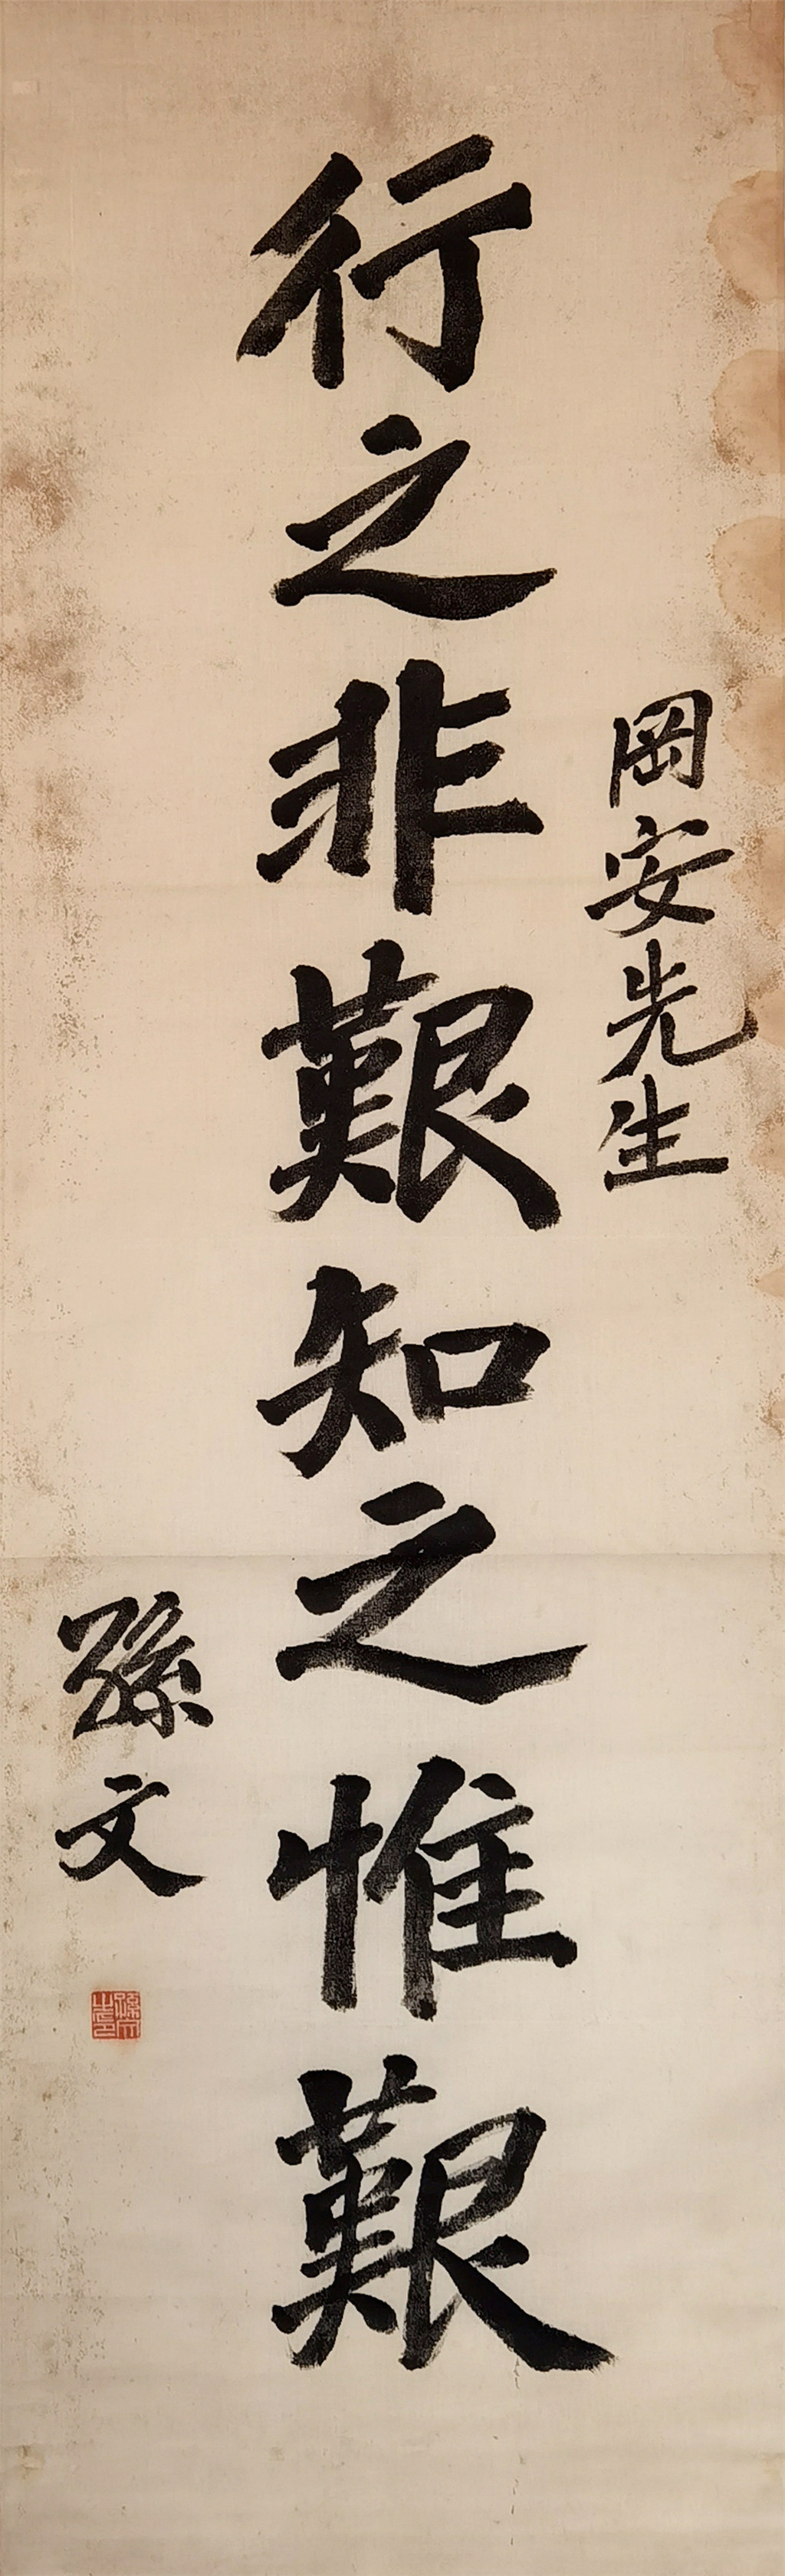 岡安先生
行之非艱知之惟艱
孫文
孫文之印